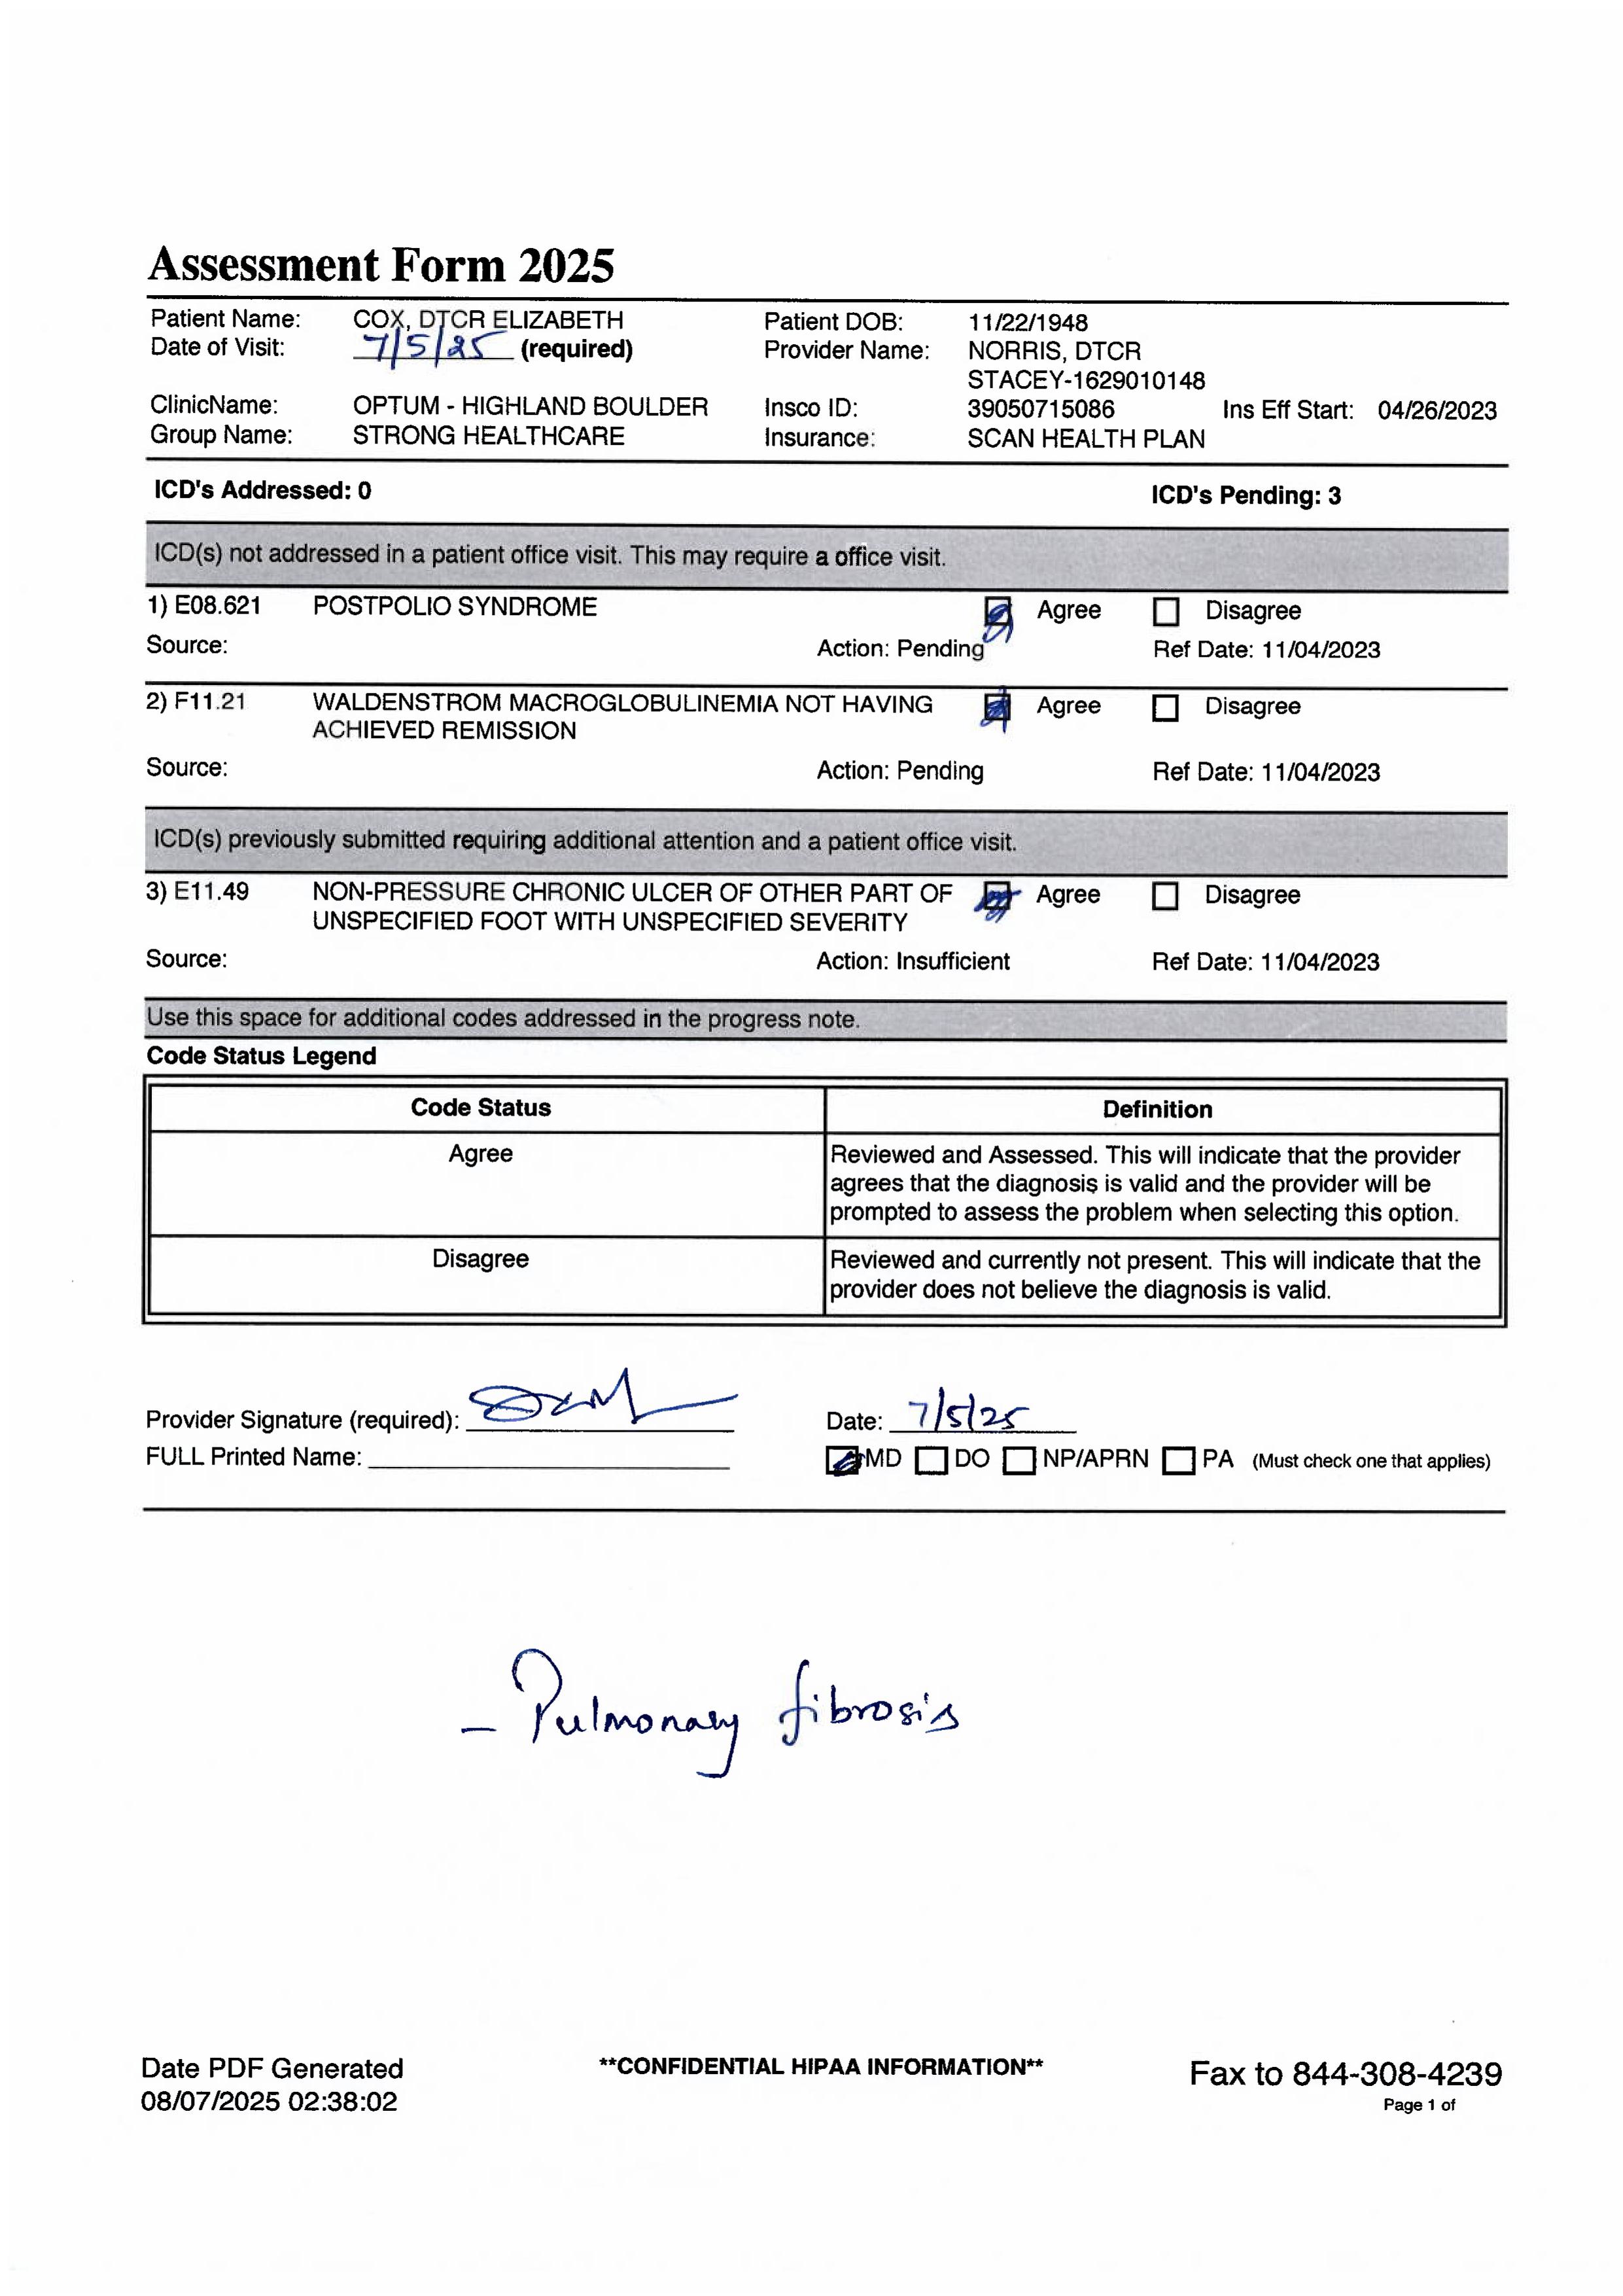 Assessment Form 2025
Patient Name: COX, DTCR ELIZABETH Patient DOB: 11/22/1948
Date of Visit: 7/5/25 (required) Provider Name: NORRIS, DTCR
STACEY-1629010148
ClinicName: OPTUM - HIGHLAND BOULDER Insco ID: 39050715086 Ins Eff Start: 04/26/2023
Group Name: STRONG HEALTHCARE Insurance: SCAN HEALTH PLAN
ICD's Addressed: 0 ICD's Pending: 3
ICD(s) not addressed in a patient office visit. This may require a office visit.
1) E08.621 POSTPOLIO SYNDROME Agree Disagree
Source: Action: Pending Ref Date: 11/04/2023
2) F11.21 WALDENSTROM MACROGLOBULINEMIA NOT HAVING Agree Disagree
ACHIEVED REMISSION
Source: Action: Pending Ref Date: 11/04/2023
ICD(s) previously submitted requiring additional attention and a patient office visit.
3) E11.49 NON-PRESSURE CHRONIC ULCER OF OTHER PART OF Agree Disagree
UNSPECIFIED FOOT WITH UNSPECIFIED SEVERITY
Source: Action: Insufficient Ref Date: 11/04/2023
Use this space for additional codes addressed in the progress note.
Code Status Legend
Code Status Definition
Agree Reviewed and Assessed. This will indicate that the provider
agrees that the diagnosis is valid and the provider will be
prompted to assess the problem when selecting this option.
Disagree Reviewed and currently not present. This will indicate that the
provider does not believe the diagnosis is valid.
Provider Signature (required): Date: 7/5/25
FULL Printed Name: MD DO NP/APRN PA (Must check one that applies)
- Pulmonary fibrosis
Date PDF Generated **CONFIDENTIAL HIPAA INFORMATION** Fax to 844-308-4239
08/07/2025 02:38:02 Page 1 of